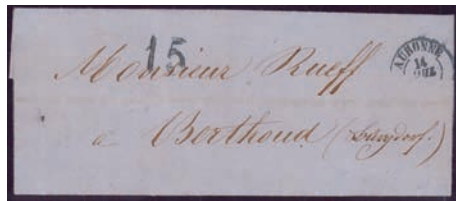 15
AUBONNE
14
Monsieur Rueff
a Berthoud (Burgdorf.)